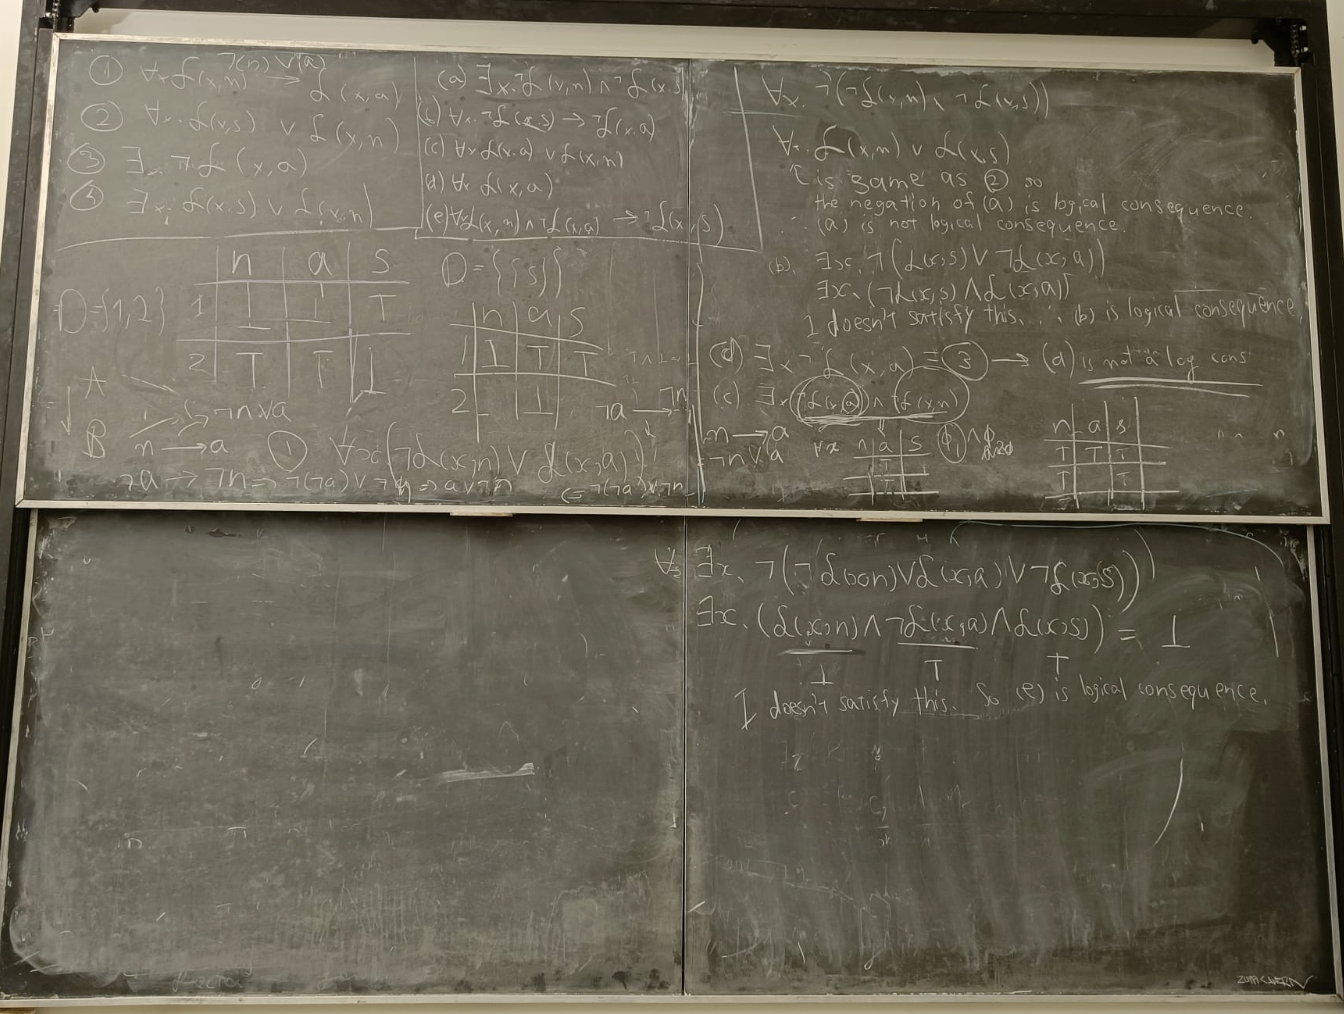 ¬(n) ∨ (a)
① ∀x. ℒ(x,n) → ℒ(x,a)
② ∀x. ℒ(x,s) ∨ ℒ(x,n)
③ ∃x. ¬ℒ(x,a)
④ ∃x. ℒ(x,s) ∨ ℒ(x,n)
(a) ∃x. ¬ℒ(x,n) ∧ ¬ℒ(x,s)
(b) ∀x. ¬ℒ(x,s) → ¬ℒ(x,a)
(c) ∀x ℒ(x,a) ∨ ℒ(x,n)
(d) ∀x ℒ(x,a)
(e) ∀x ℒ(x,n) ∧ ¬ℒ(x,a) → ¬ℒ(x,s)
D={1,2}
n a s
1 ⊥ ⊥ T
2 T T ⊥
n a s
1 ⊥ T T
2 ⊥
A
B
↳ ¬n∨a
¬a → ¬n
n → a ① ∀x(¬ℒ(x,n) ∨ ℒ(x,a))
¬a → ¬n ⇒ ¬(¬a) ∨ ¬n ⇒ a∨¬n ⇐ ¬(¬a)∨¬n
∀x. ¬(¬ℒ(x,n) ∧ ¬ℒ(x,s))
∀x. ℒ(x,n) ∨ ℒ(x,s)
is same as ② so
the negation of (a) is logical consequence.
∴ (a) is not logical consequence.
(b) ∃x. ¬(ℒ(x,s) ∨ ¬ℒ(x,a))
∃x. (¬ℒ(x,s) ∧ ℒ(x,a))
I doesn't satisfy this. ∴ (b) is logical consequence
(d) ∃x ¬ℒ(x,a) ≡ ③ → (d) is not a log cons
(c) ∃x ¬ℒ(x,a) ∧ ¬ℒ(x,n)
n → a
¬n∨a
∀x
n a s
T
① ∧
n a s
T T T
T
∃x. ¬(¬ℒ(x,n)∨ℒ(x,a)∨¬ℒ(x,s))
∃x. (ℒ(x,n)∧¬ℒ(x,a)∧ℒ(x,s)) = ⊥
⊥ T T
I doesn't satisfy this. So (e) is logical consequence.